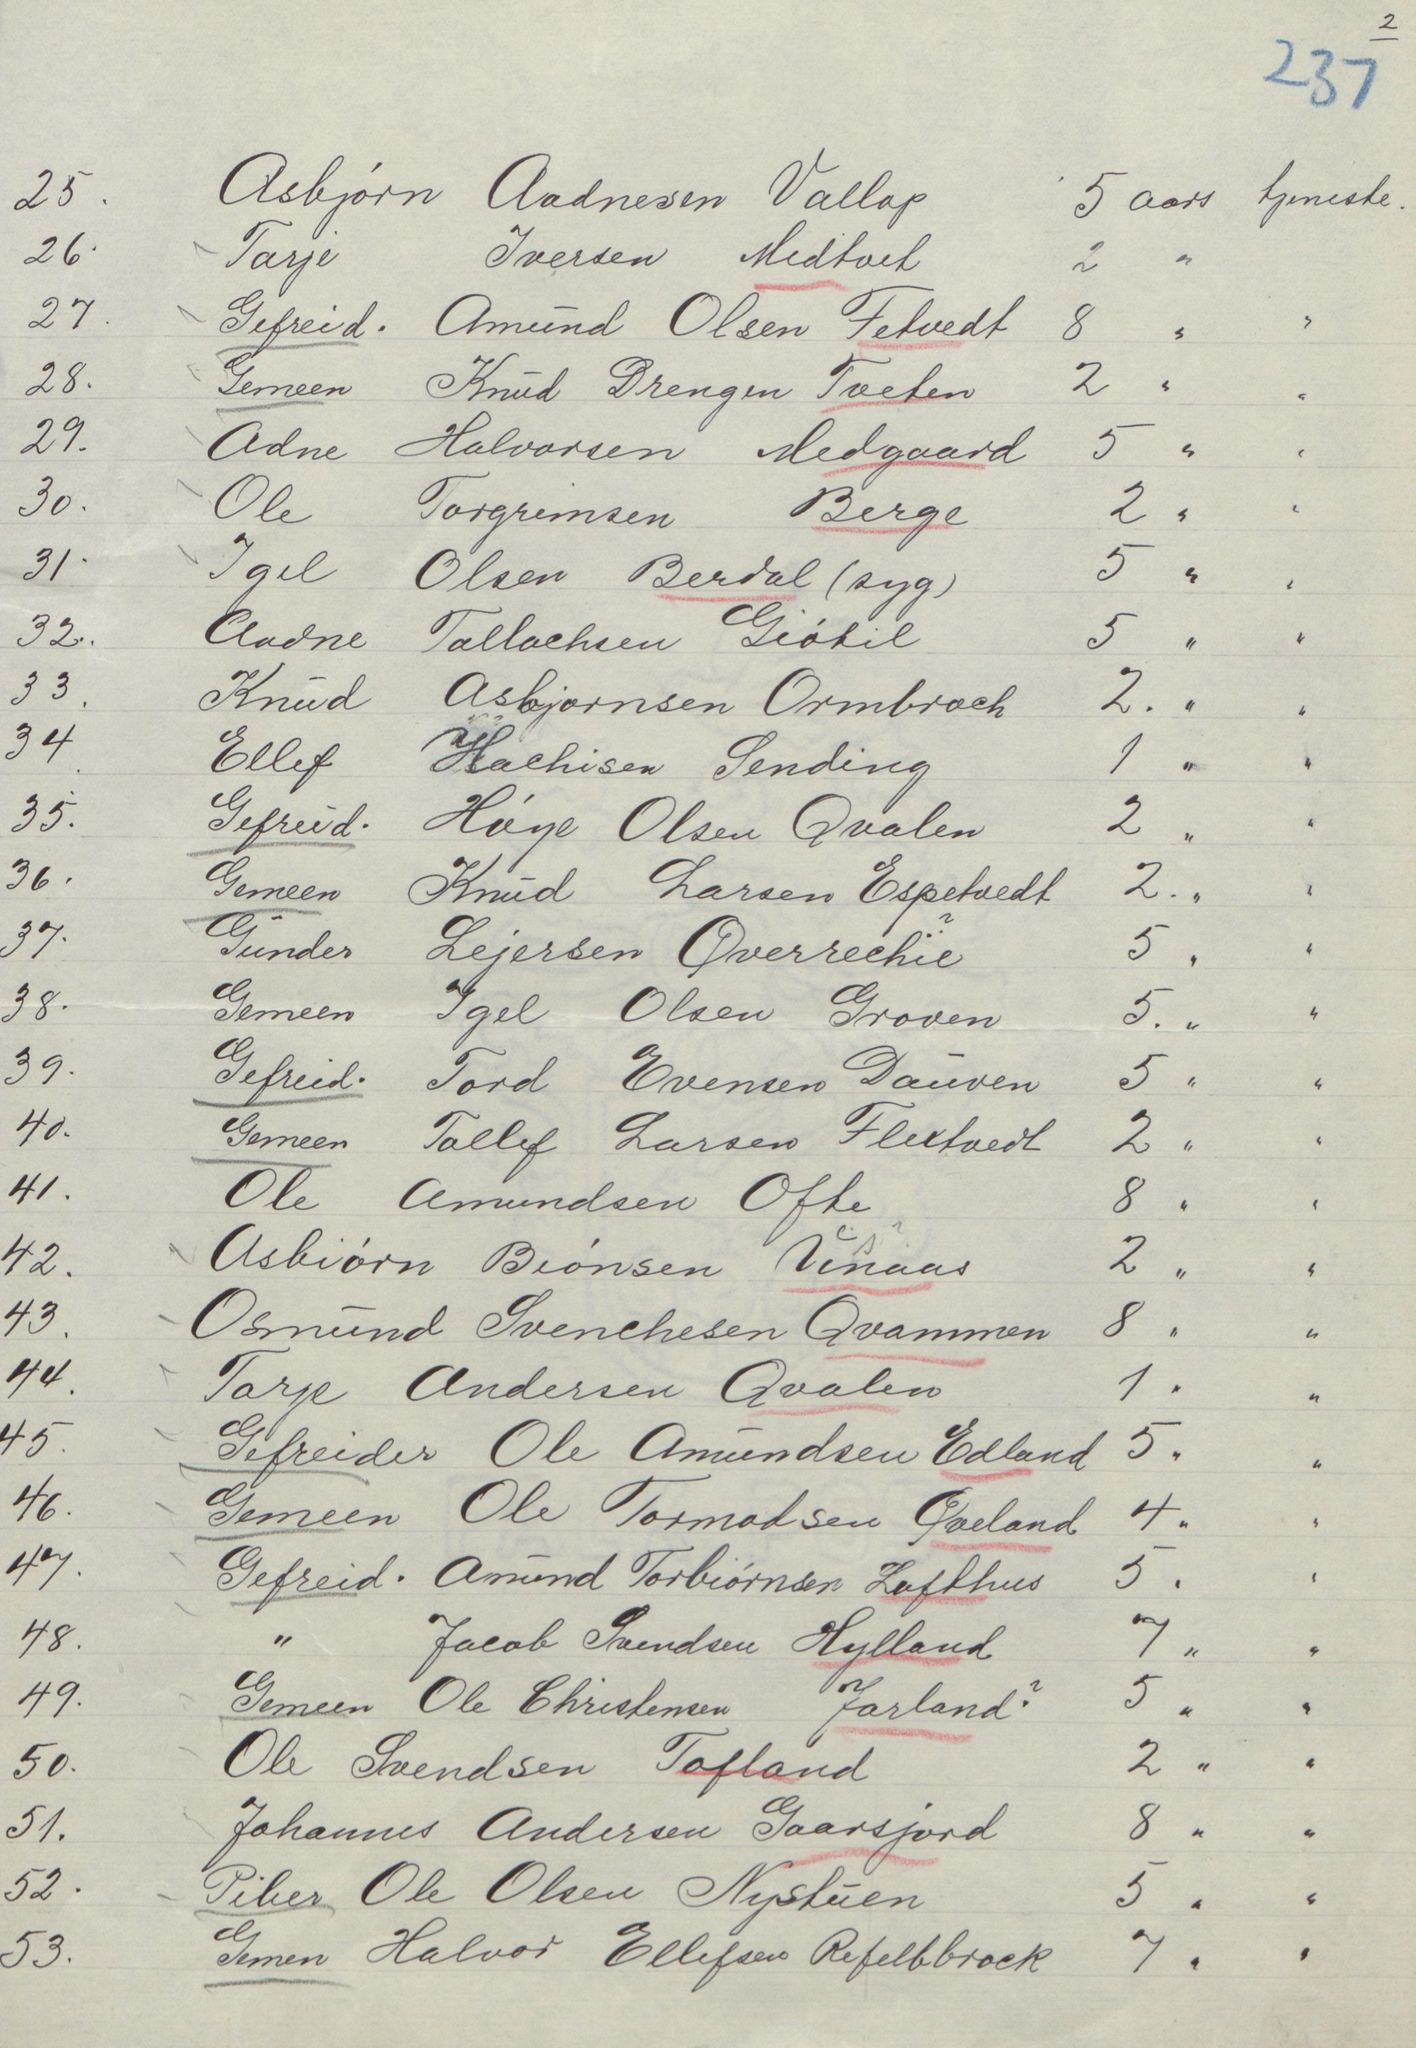 2
237
25. Asbjórn Aadnesen Vallap 5 aars tjeneste.
26. Tarje Iversen Midtvet 2 " 
27. Gefreid. Amund Olsen Fetvedt 8 " "
28. Gemeen Knud Drengen Tveten 2 " "
29. Adne Halvorsen Medgaard 5 " "
30. Ole Torgrimsen Berge 2 " "
31. Igel Olsen Berdal (syg) 5 " "
32. Aadne Tallachsen Giótil 5 " "
33. Knud Asbjornsen Ormbroch 2. " "
34. Ellef Hachisen Sending 1 " "
35. Gefreid. Hóye Olsen Qvalen 2 " "
36. Gemeen Knud Larsen Espetvedt 2. " "
37. Gunder Lejersen Qverrechie ? 5 " "
38. Gemeen Igel Olsen Groven 5. " "
39. Gefreid. Tord Evensen Dauven 5 " "
40. Gemeen Tallef Larsen Flextvedt 2 " "
41. Ole Amundsen Ofte 8 " "
42. Asbiórn Biónsen Vinaas ? 2 " "
43. Osmund Svenchesen Qvammen 8 " "
44. Tarje Andersen Qvalen 1 " "
45. Gefreider Ole Amundsen Edland 5 " "
46. Gemeen Ole Tormodsen Qveland 4 " "
47. Gefreid. Amund Torbiórnsen Lofthus 5 " "
48. " Jacob Svendsen Hylland 7 " "
49. Gemeen Ole Christensen Jarland ? 5 " "
50. Ole Svendsen Tofland 2 " "
51. Johannes Andersen Gaarsjord 8 " "
52. Piber Ole Olsen Nystuen 5 " "
53. Gemen Halvor Ellefsen Refelbbrock 7 " "